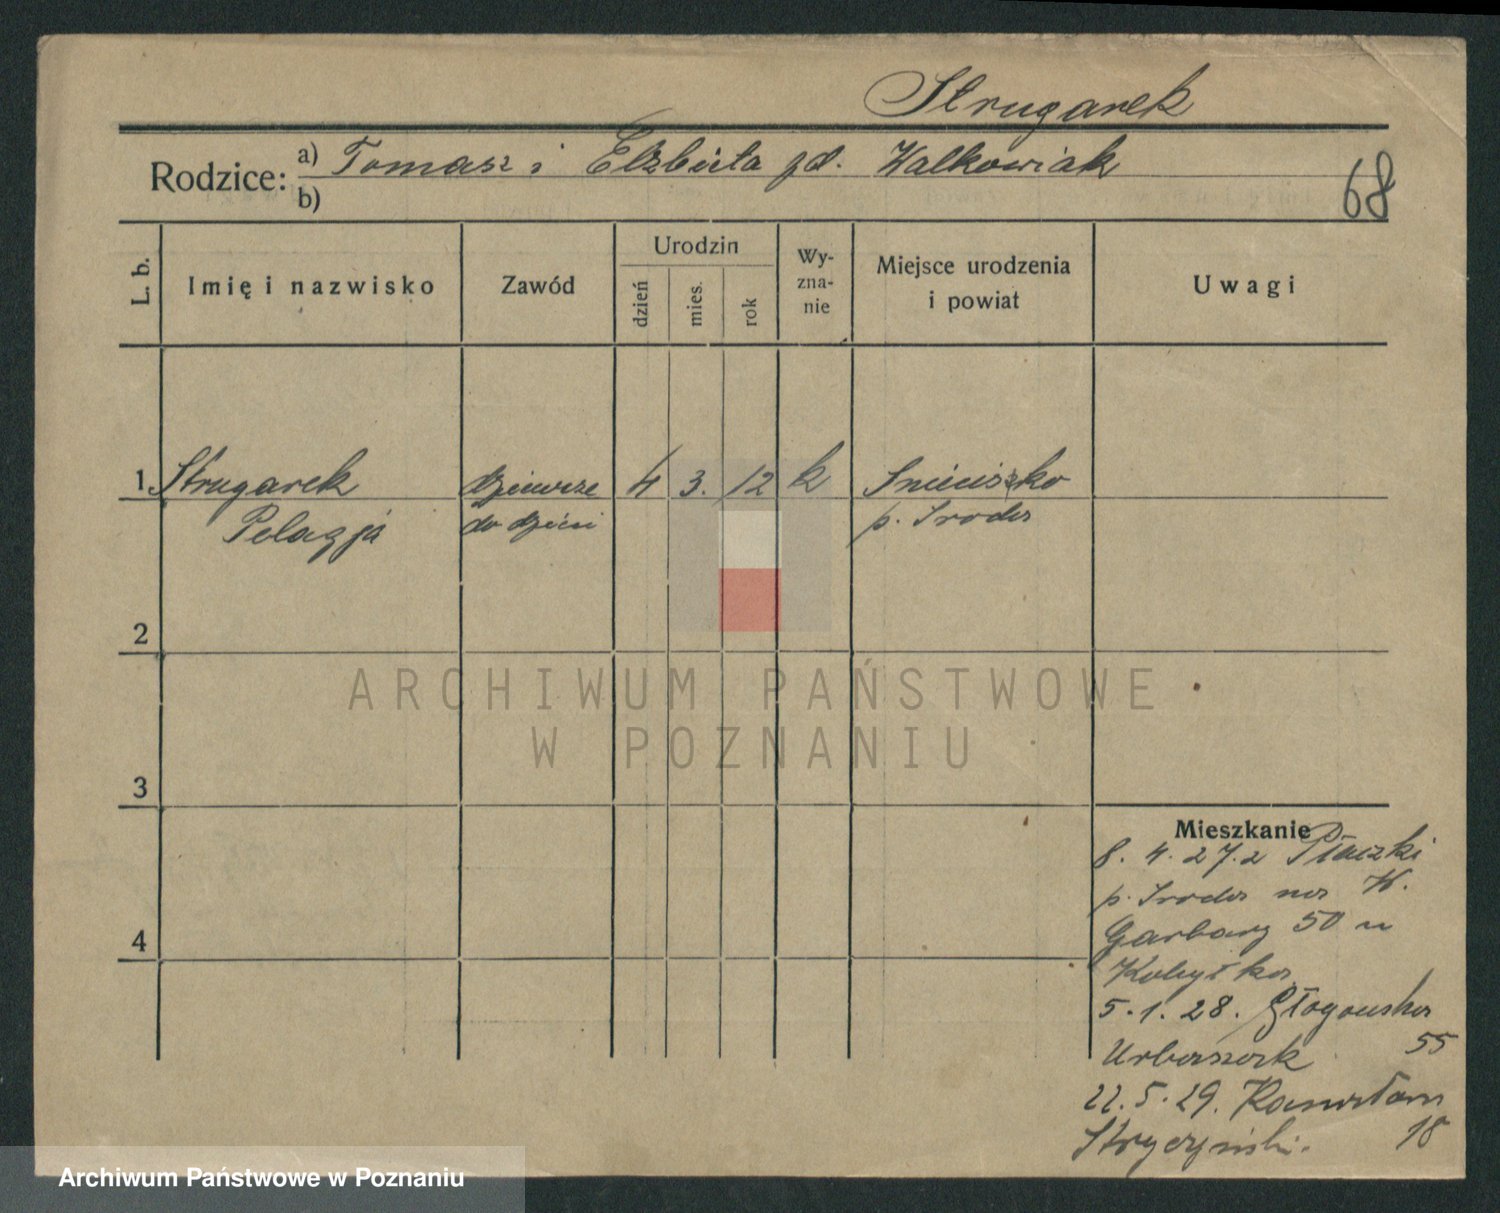 Strugarek
Rodzice: a) Tomasz i Elżbieta zd. Walkowiak
b)
68
L. b.
Imię i nazwisko
Zawód
Urodzin
dzień
mies.
rok
Wy-
zna-
nie
Miejsce urodzenia
i powiat
Uwagi
1. Strugarek dziewcze 4 3. 12 k Snieciszko
Pelagja do dzieci p. Sroda
2
3
4
ARCHIWUM PAŃSTWOWE
W POZNANIU
Mieszkanie
8. 4. 27. z Płaczki
p. Sroda na W.
Garbary 50 u
Kobyłka
5. 1. 28. Głogowska
Urbaszek 55
22. 5. 29.
Stryczyński. 18
Archiwum Państwowe w Poznaniu